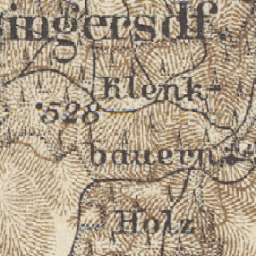 ingersdf.
Klenk-
528
bauern
Holz